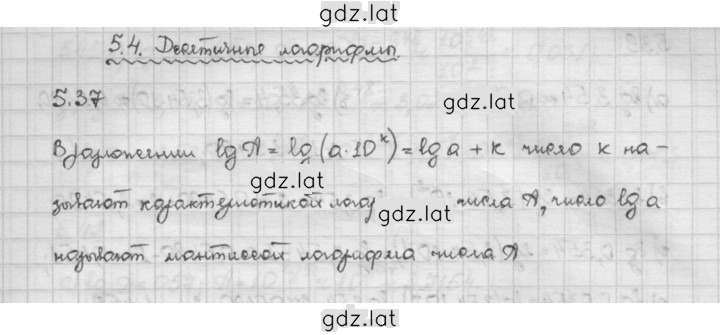 gdz.lat
5.4. Десятичные логарифмы
5.37
gdz.lat
В разложении lg A = lg (a·10^k) = lg a + k число k на-
gdz.lat
зывают характеристикой лога числа A, число lg a
gdz.lat
называют мантиссой логарифма числа A.
gdz.lat